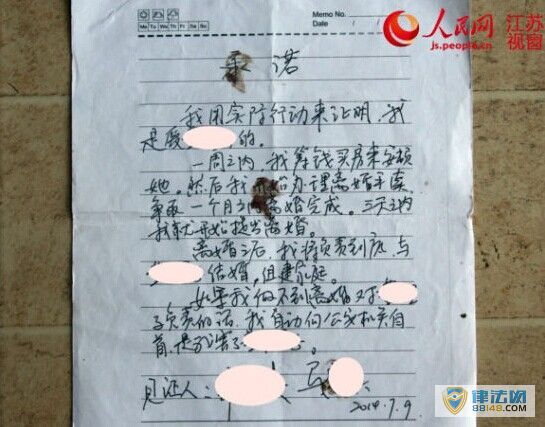 Memo No.
Mo Tu We Th Fr Sa Su
Date / /
人民网 江苏视图
js.people.cn
承诺
我用实际行动来证明,我
是爱 的。
一周之内,我筹钱买房来安顿
她。然后我 办理离婚手续
争取一个月内离婚完成。三天之内
我就开始提出离婚。
离婚之后,我将负责到底,与
结婚,组建家庭。
如果我做不到离婚对
负责的话,我自动向公安机关自
首,是我
见证人:
2014.7.9
律法网
88148.com